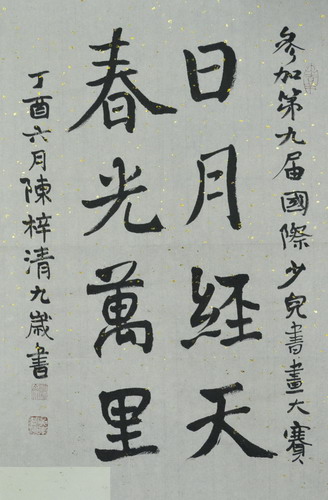 參加第九届國際少兒書畫大賽
日月經天
春光萬里
丁酉六月陳梓清九歲書